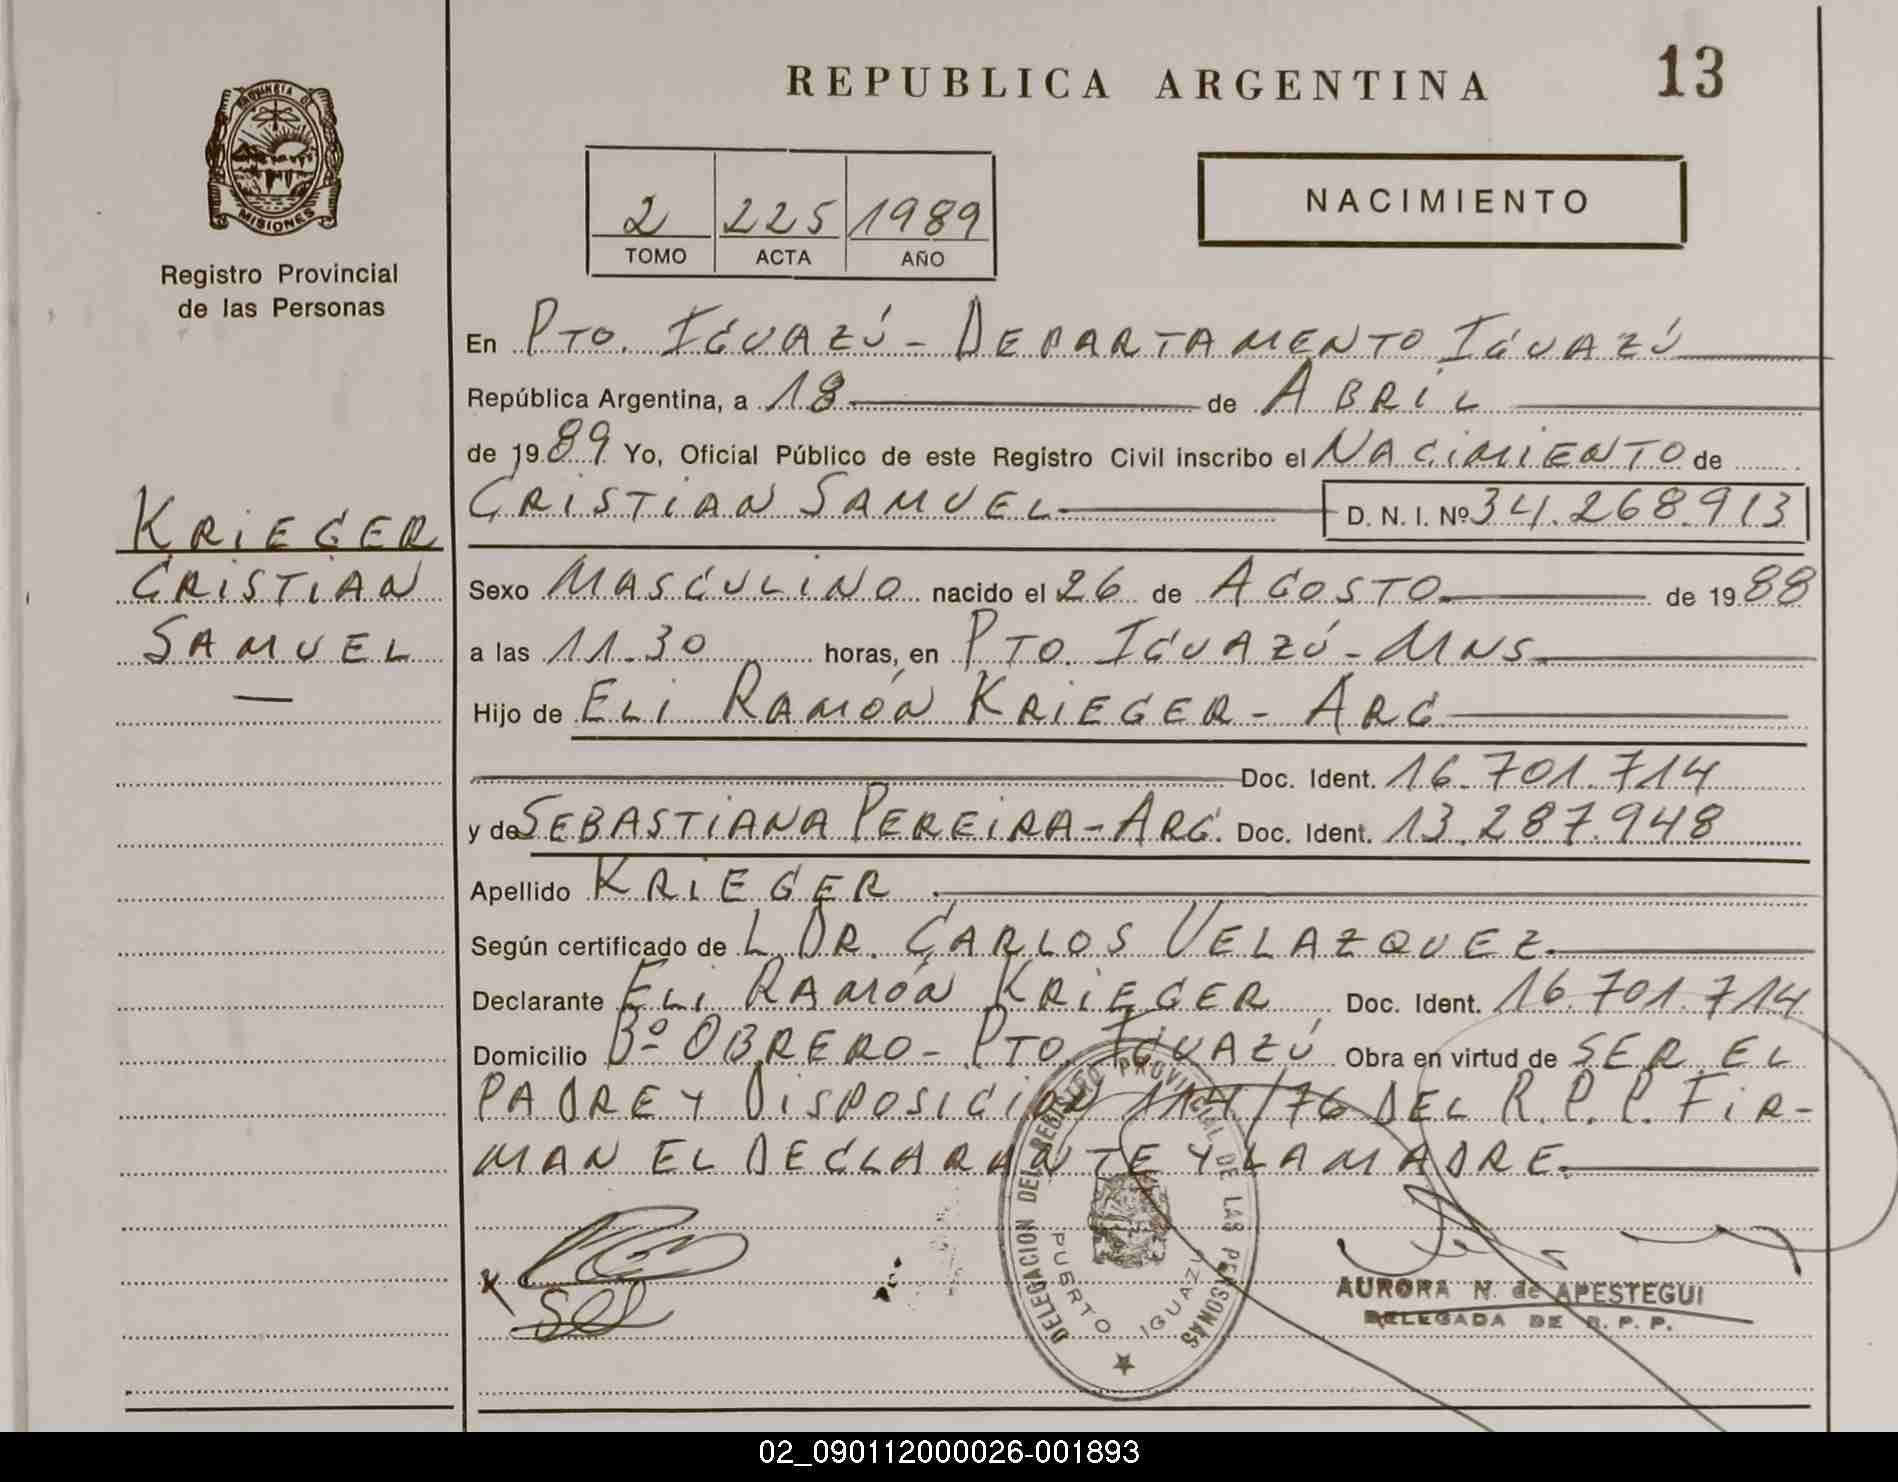 REPUBLICA ARGENTINA
13
PROVINCIA D
MISIONES
Registro Provincial
de las Personas
2 225 1989
TOMO ACTA AÑO
NACIMIENTO
KRIEGER
CRISTIAN
SAMUEL
En PTO. IGUAZÚ - DEPARTAMENTO IGUAZÚ
República Argentina, a 18 de ABRIL
de 1989 Yo, Oficial Público de este Registro Civil inscribo el NACIMIENTO de
CRISTIAN SAMUEL D. N. I. Nº 34.268.913
Sexo MASCULINO nacido el 26 de AGOSTO de 1988
a las 11.30 horas, en PTO. IGUAZÚ - MNS
Hijo de ELI RAMÓN KRIEGER - ARG
Doc. Ident. 16.701.714
y de SEBASTIANA PEREIRA - ARG. Doc. Ident. 13.287.948
Apellido KRIEGER
Según certificado de L. DR. CARLOS VELAZQUEZ.
Declarante ELI RAMÓN KRIEGER Doc. Ident. 16.701.714
Domicilio Bº OBRERO - PTO. IGUAZÚ Obra en virtud de SER EL
PADRE Y DISPOSICIÓN 114/76 DEL R.P.P. FIR-
MAN EL DECLARANTE Y LA MADRE.
DELEGACION DEL REGISTRO PROVINCIAL DE LAS PERSONAS
PUERTO IGUAZU
AURORA N. de APESTEGUI
DELEGADA DE R. P. P.
02_090112000026-001893